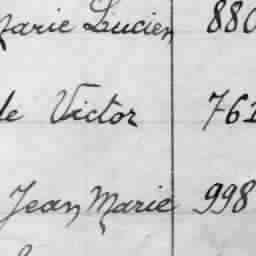 Marie Lucien 880
le Victor 761
Jean Marie 998